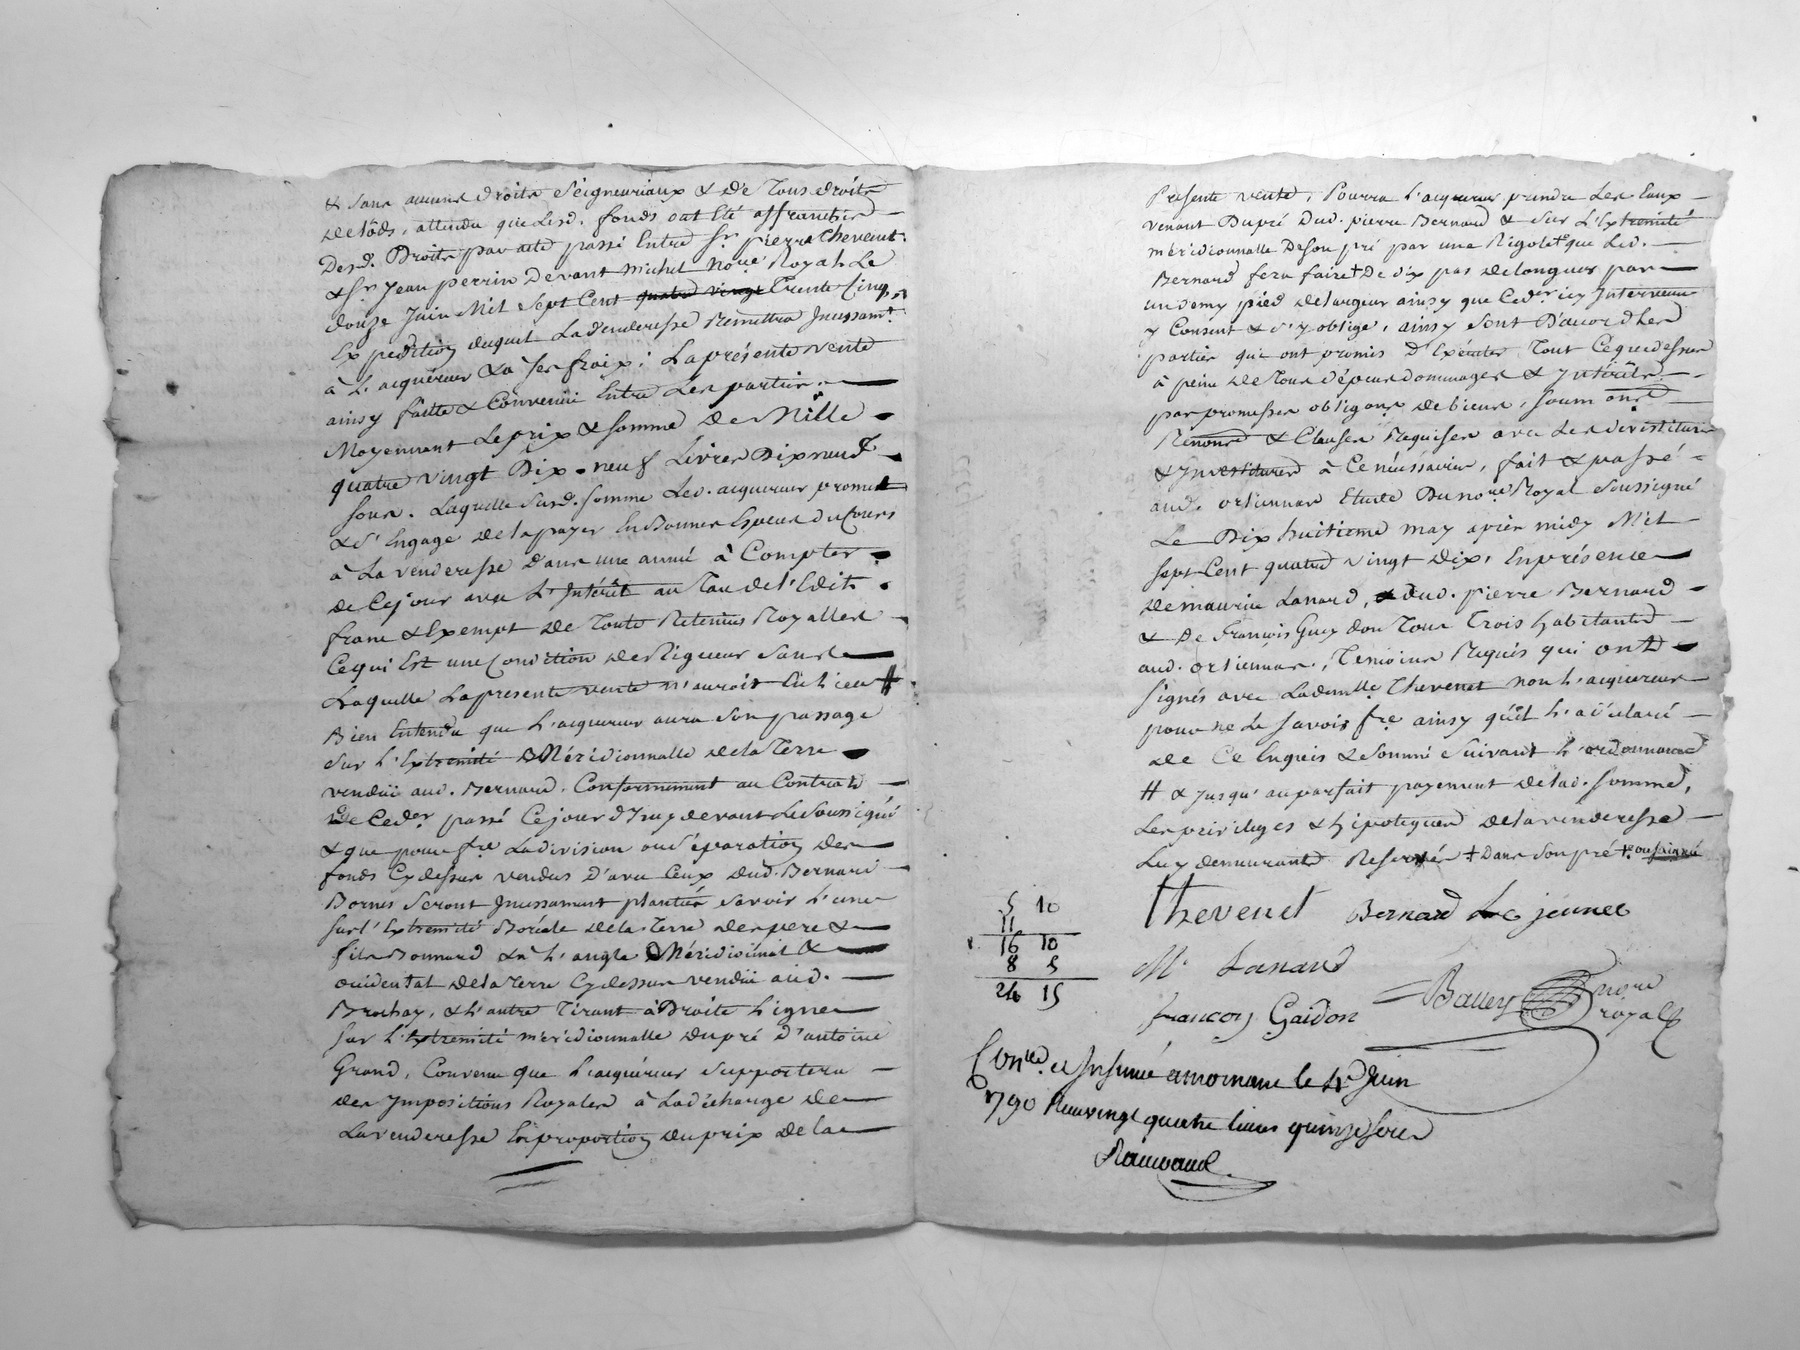 & sans aucuns droits séigneuriaux & de Tous droits
de lods, attendu que lesd. fonds ont Eté affranchis
Desd. Droits par acte passé Entre Sr. pierre Thevenet
& Sr. Jean perrin Devant Michel Nore. Royal Le
douze Juin Mil Sept Cent quatre vingt Trente Cinq,
Expedition duquel La venderesse Remettra Incessamt.
à L'acquéreur & à ses fraix; La présente vente
ainsy faitte & Convenüe Entre les parties
Moyennant Le prix & somme de Mille
quatre vingt Dix-neuf Livres Dix neuf
sous. Laquelle susd. somme Led. acquereur promet
& s'Engage de la payer En Bonnes Especes du Cours
à La venderesse dans une année à Compter
de Ce jour avec L'Intérêt au Taux de l'Edit
franc & Exempt de Toute Retenües Royalles
Ce qui Est une Condition de Rigueur sans
Laquelle La presente vente n'auroit Eü lieu #
Bien Entendu que L'acquereur aura son passage
sur L'Extremité Méridionnalle de la Terre
vendüe aud. Bernard, Conformement au Contrat
de Ceder passé Ce jour d'huy devant Le Soussigné
& que pour fre La division ou Séparation des
fonds Cy dessus vendus d'avec Ceux dud. Bernard
Bornes Seront Incessament plantées savoir L'une
sur l'Extremité Boréale de la Terre des pere &
fils Bonnard & à L'angle Méridional &
occidental de la Terre Cy dessus vendüe aud.
Brochay, & L'autre Tirant à Droite Ligne
sur L'Extremité méridionnalle du pré d'antoine
Grand, Convenu que L'acquéreur Supportera
des Impositions Royales à La décharge de
La venderesse En proportion du prix de la
Présente vente, Pourra L'acquereur prendre Les Eaux
venant Du pré Dud. pierre Bernard & sur L'Extremité
méridionnalle De son pré par une Rigole que Led.
Bernard fera faire + De dix pas de longueur par
un demy pied de largeur ainsy que Ceder icy Intervenu
y Consent & s'y oblige, ainsy sont D'accord Les
parties qui ont promis D'Exécuter Tout Ce que dessus
à peine de Tous dépens dommages & Intérêts
par promesses obligons de biens, soumons
Renonc & Clauses Requises avec Les devestitures
& Investitures à Ce nécessaires, fait & passé
aud. ortiennas Etude Du nore Royal Soussigné
Le Dix huitieme may après midy Mil
sept Cent quatre vingt Dix, En présence
de maurice Lanard, & dud. pierre Bernard
& De François Guey don Tous Trois habitants
aud. ortiennas, Temoins Requis qui ont
signés avec Lademlle. Thevenet non L'acquereur
pour ne Le savoir fre ainsy qu'il L'a déclaré
de Ce Enquis & Sommé Suivant L'ordonnance
# & Jusqu'au parfait payement de lad. somme,
Les privileges & hipoteques de la venderesse
Luy demeurants Reservés + Dans son pré
5 10
11
16 10
8 5
24 15
Thevenet Bernard Le jeunee
Mce Lanard
françois Gaidon
Balley nore
royal
Conlé. et Insinué amornant le 1r Juin
1790 Reçu vingt quatre livres quinze sous